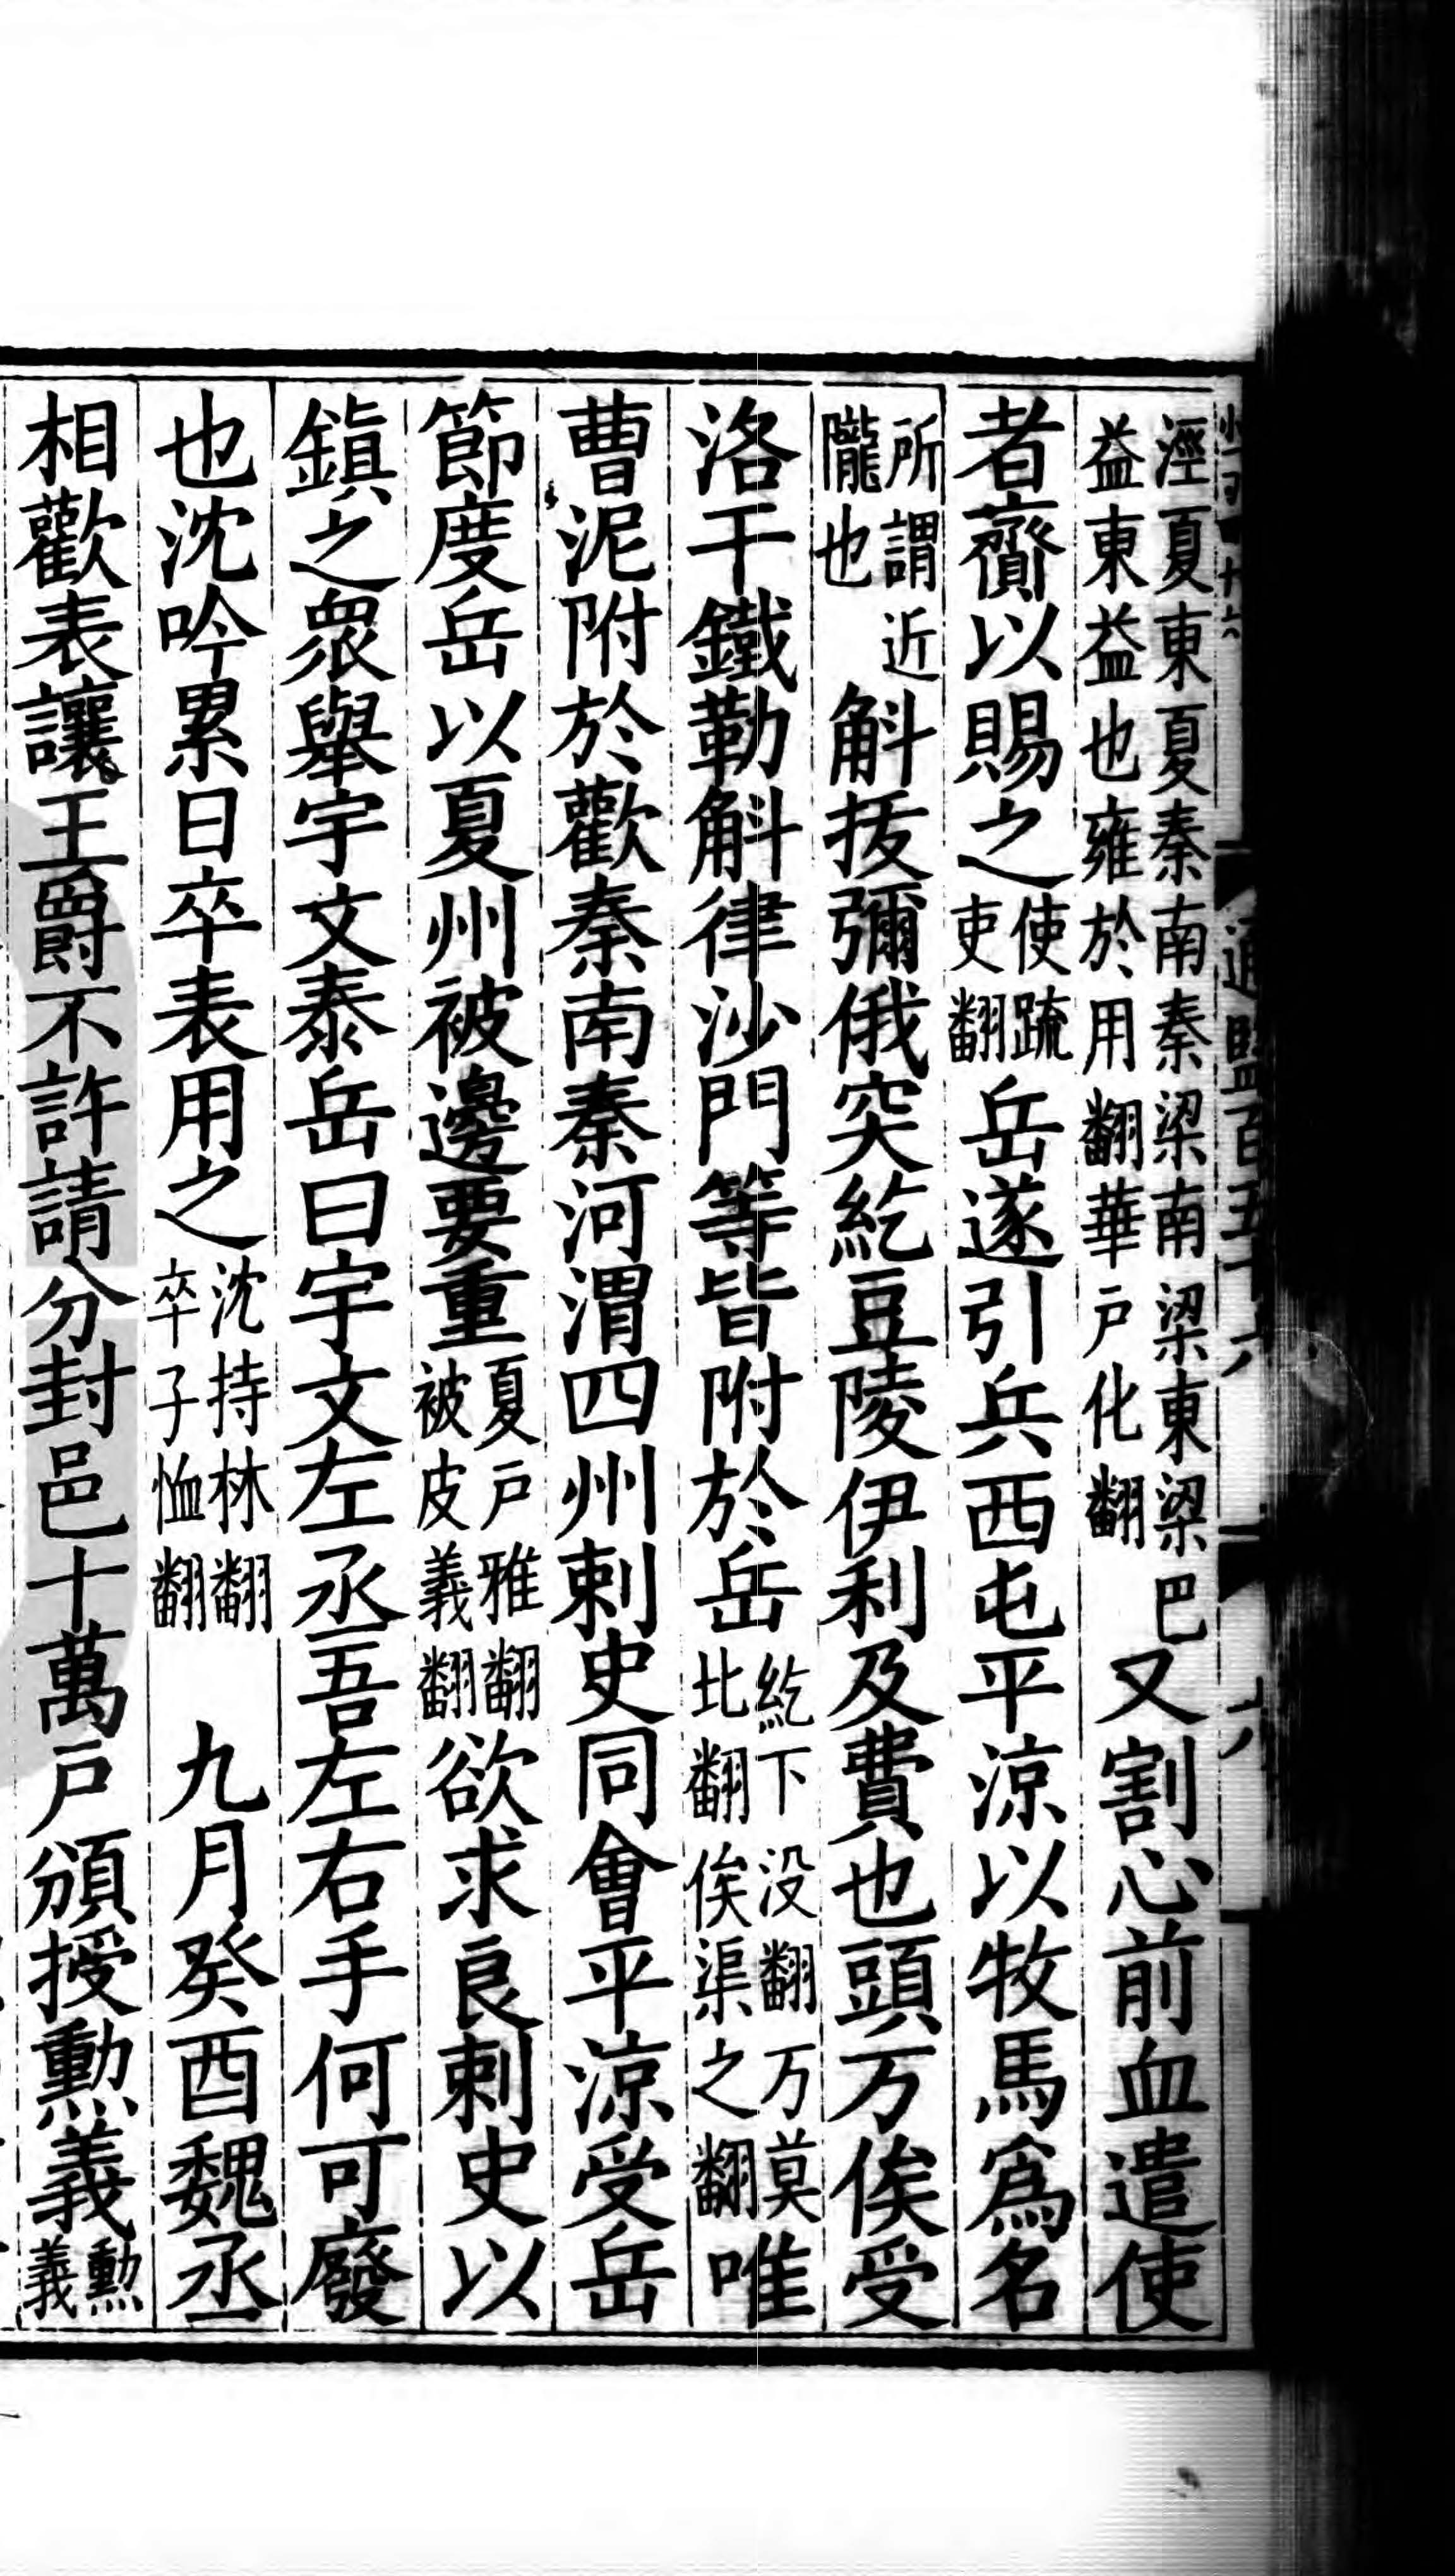 涇夏東夏秦南秦梁南梁東梁巴
益東益也雍於用翻華戶化翻
又割心前血遣使
者齎以賜之
使疏
吏翻
岳遂引兵西屯平涼以牧馬爲名
所謂近
隴也
斛拔彌俄突紇豆陵伊利及費也頭万俟受
洛干鐵勒斛律沙門等皆附於岳
紇下没翻万莫
北翻俟渠之翻
唯
曹泥附於歡秦南秦河渭四州刺史同會平涼受岳
節度岳以夏州被邊要重
夏戶雅翻
被皮義翻
欲求良刺史以
鎮之眾舉宇文泰岳曰宇文左丞吾左右手何可廢
也沈吟累日卒表用之
沈持林翻
卒子恤翻
九月癸酉魏丞
相歡表讓王爵不許請分封邑十萬戶頒授勲義
勲
義